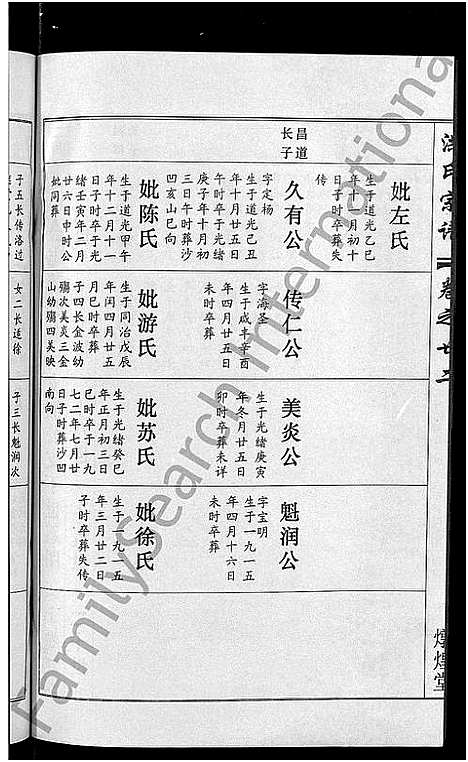 洪氏宗谱
卷之廿二
燉煌堂
昌道
长子
妣左氏
生于道光乙巳
年十月初十
日子时卒葬失
传
久有公
字定杨
生于道光己丑
年十月廿五日
午时卒于光绪
庚子年十月初
三日午时葬沙
凹亥山巳向
妣陈氏
生于道光甲午
年十二月十一
日子时卒于光
绪壬寅年二月
廿六日申时公
妣同葬
传仁公
字海圣
生于咸丰辛酉
年四月廿五日
未时卒葬
妣游氏
生于同治戊辰
年闰四月廿五
月巳时卒葬
子四长金波幼
殇次美炎三金
山幼殇四美映
美炎公
生于光绪庚寅
年冬月廿五日
卯时卒葬未详
妣苏氏
生于光绪癸巳
年正月初三日
巳时卒于一九
七二年七月廿
日子时葬沙凹
南向
魁润公
字宝明
生于一九一五
年四月十六日
未时卒葬
妣徐氏
生于一九一五
年三月廿二日
子时卒葬失传
子五长传洛过
女二长适徐
子三长魁润次
FamilySearch International